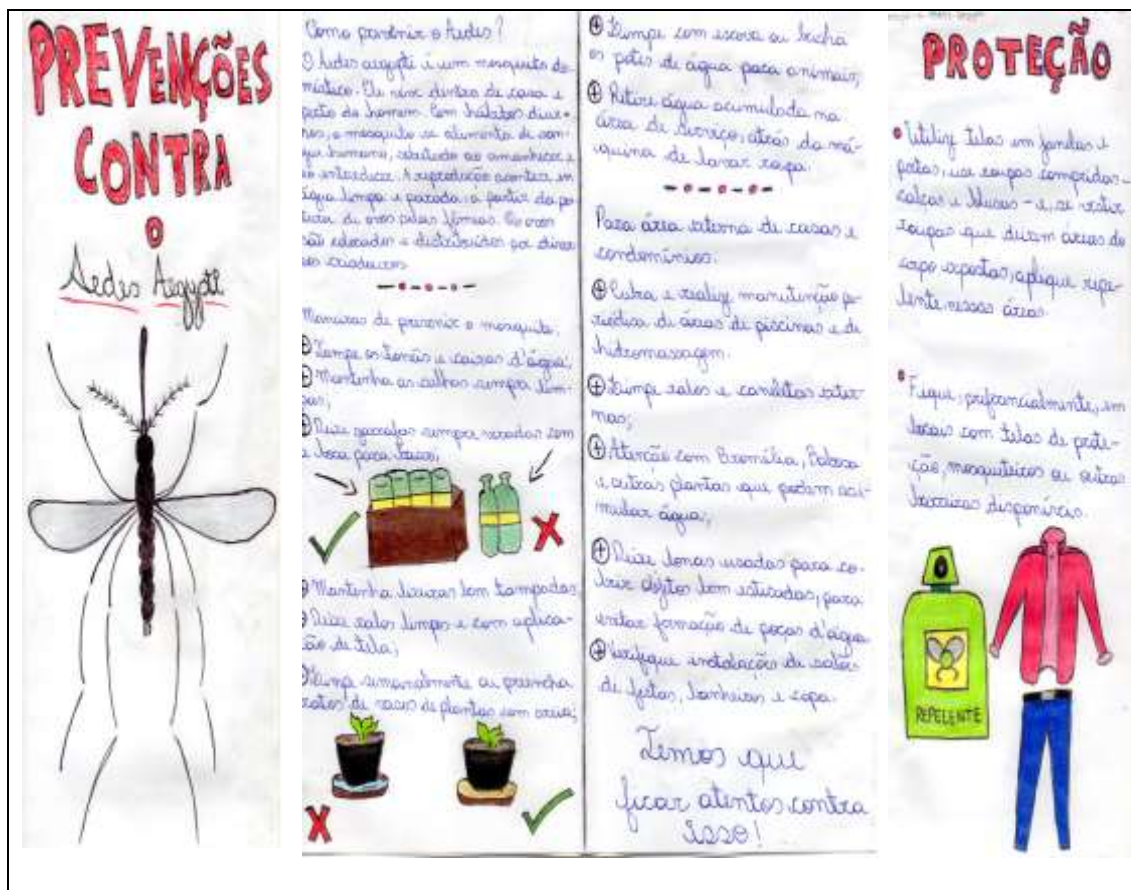 PREVENÇÕES
CONTRA
O
Aedes Aegypti
Como prevenir o Aedes?
O Aedes aegypti é um mosquito do-
méstico. Ele vive dentro de casa e
perto do homem. Com hábitos diur-
nos, o mosquito se alimenta de san-
gue humano, sobretudo ao amanhecer e
ao entardecer. A reprodução acontece em
água limpa e parada, a partir da pos-
tura de ovos pelas fêmeas. Os ovos
são colocados e distribuídos por diver-
sos criadouros
Maneiras de prevenir o mosquito.
Limpe os tonéis e caixas d'água;
Mantenha as calhas sempre lim-
pas;
Deixe garrafas sempre viradas com
a boca para baixo;
Mantenha lixeiras bem tampadas;
Deixe ralos limpos e com aplica-
ção de tela;
Limpe semanalmente ou preencha
pratos de vasos de plantas com areia;
Limpe com escova ou bucha
os potes de água para animais;
Retire água acumulada na
área de serviço, atrás da má-
quina de lavar roupa.
Para área externa de casas e
condomínios:
Cubra e realize manutenção pe-
riódica de áreas de piscinas e de
hidromassagem.
Limpe ralos e canaletas exter-
nas;
Atenção com Bromélia, Babosa
e outras plantas que podem acu-
mular água;
Deixe lonas usadas para co-
brir objetos bem esticadas, para
evitar formação de poças d'água
Verifique instalações de salão
de festas, banheiros e copa.
Temos que
ficar atentos contra
isso!
PROTEÇÃO
Utilize telas em janelas e
portas, use roupas compridas -
calças e blusas - e, se vestir
roupas que deixam áreas do
corpo expostas, aplique repe-
lente nessas áreas.
Fique, preferencialmente, em
locais com telas de prote-
ção, mosquiteiros ou outras
barreiras disponíveis.
REPELENTE